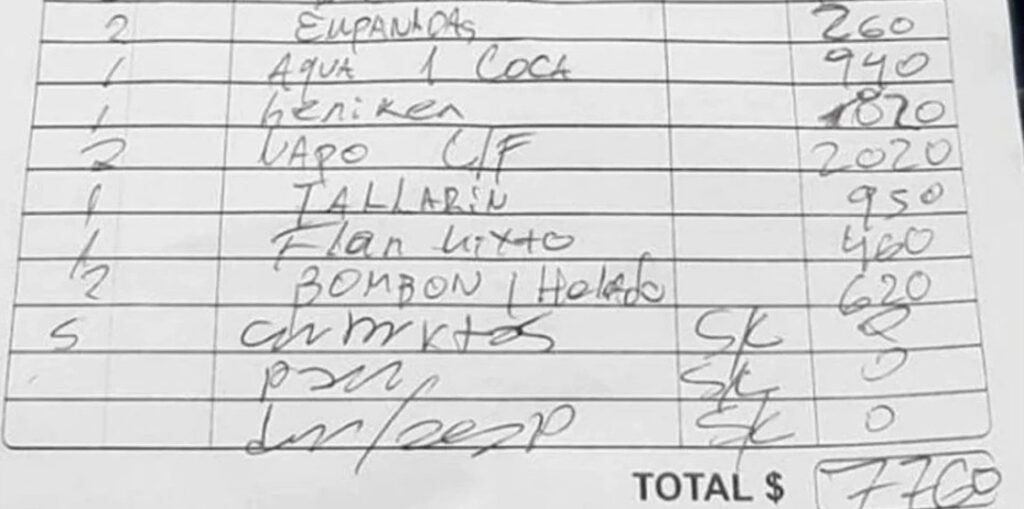 2 EMPANADAS 260
1 AQUA 1 COCA 940
1 heniken 1820
2 VAPO C/F 2020
1 TALLARIN 950
1 Flan Mixto 460
2 BOMBON 1 Helado 620
5 S/C 0
pan S/C 0
S/C 0
TOTAL $ 7760